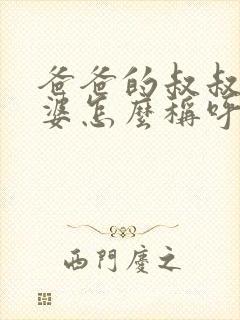 爸爸的叔叔
婆怎麼稱呼
西門慶之